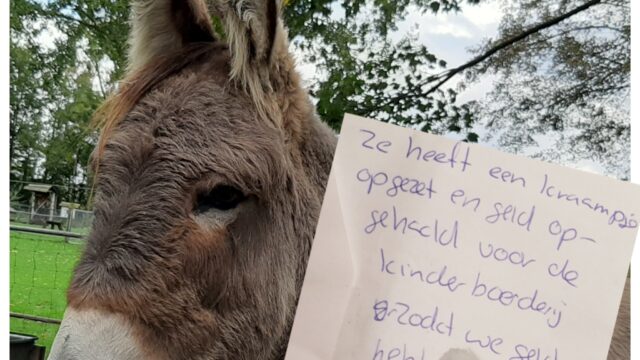 Ze heeft een kraampje
opgezet en geld op-
gehaald voor de
kinderboerderij
zodat we geld